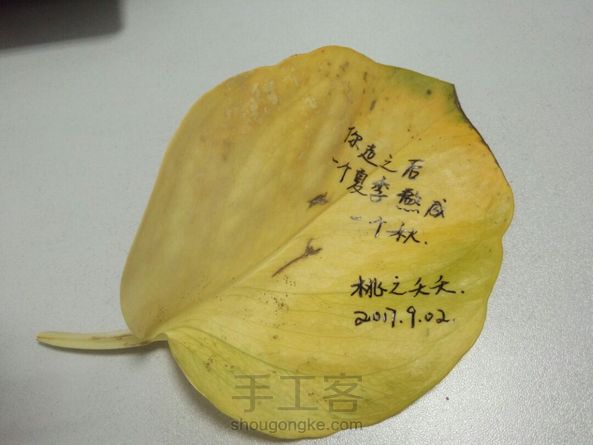 你走之后
一个夏季熬成
一个秋.
桃之夭夭.
2017.9.02.
手工客
shougongke.com